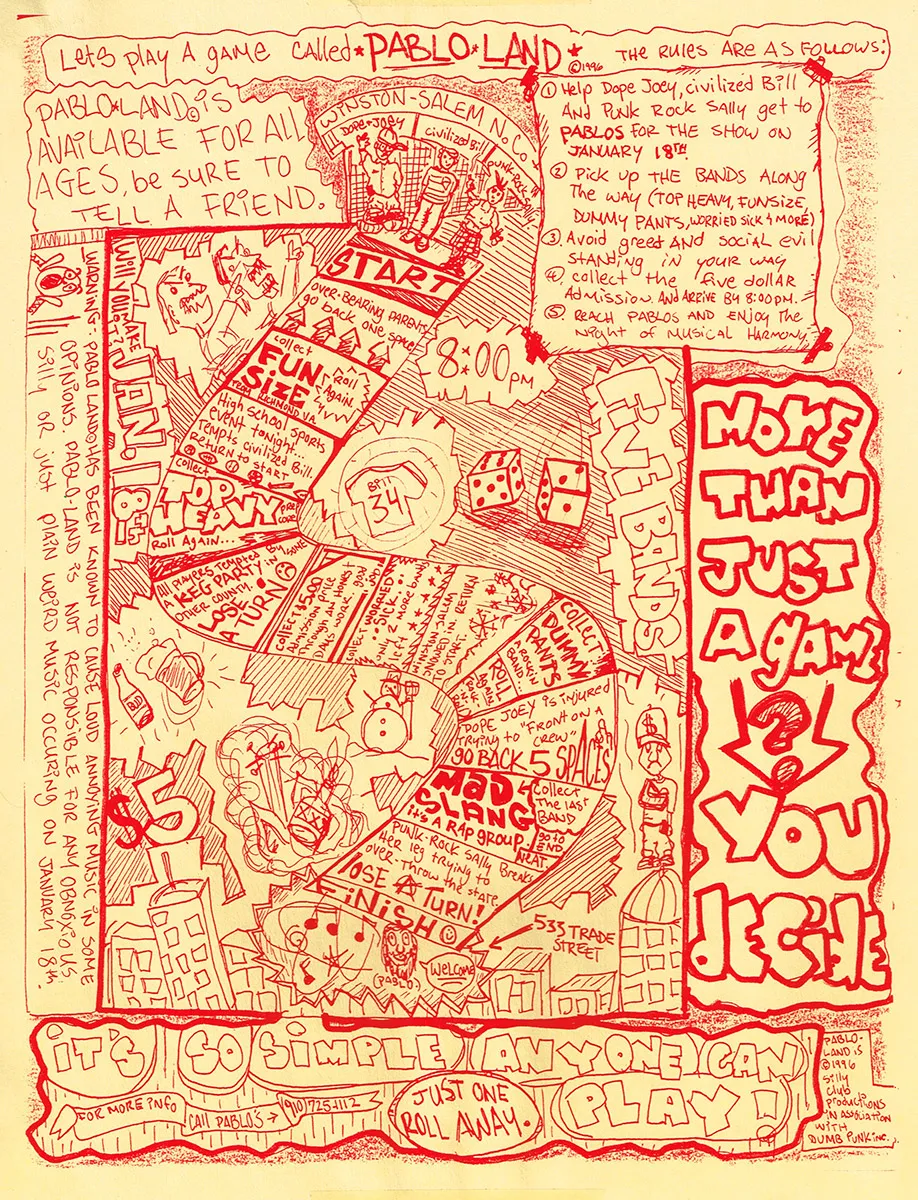 Let's play A game called *PABLO*LAND* ©1996 THE RULES ARE AS FOLLOWS:
① Help Dope Joey, civilized Bill
And Punk Rock Sally get to
PABLOS FOR THE SHOW ON
JANUARY 18TH
② Pick up THE BANDS ALONG
The way (TOP HEAVY, FUNSIZE,
DUMMY PANTS, WORRIED SICK & MORE)
③ Avoid greed AND social evil
STANDING IN YOUR WAY
④ collect the five dollar
Admission. AND ARRIVE BY 8:00PM.
⑤ REACH PABLOS AND ENJOY The
Night of Musical Harmony.
PABLO*LAND© iS
AVAILABLE FOR All
AGES, be SURE TO
TELL A FRIEND.
WINSTON-SALEM N.C.
DOPE JOEY
civilized Bill
PUNK-ROCK
START
over-bearing parents
go back one space
collect
FUN
SIZE
FROM RICHMOND VA
roll
Again
High school sports
event tonight...
Tempts civilized Bill
Return to START
collect
TOP
HEAVY
Roll Again...
8:00 PM
Bill
34
FIVE BANDS
Will you make it?
JAN. 18th
WARNING: PABLO LAND© HAS BEEN KNOWN TO CAUSE LOUD ANNOYING MUSIC IN SOME
OPINIONS. PABLO-LAND IS NOT RESPONSIBLE FOR ANY OBNOXIOUS
Silly OR JUST PLAIN WEIRD MUSIC OCCURING ON JANUARY 18th.
All PLAYERS TEMPTED BY
A KEG PARTY IN SOME
OTHER COUNTY.
LOSE
A TURN!
collect $5.00
Admission price
Through law Hanks +
DADS work
collect
WORRIED
SICK
will
left 2
WINSTON SALEM
SNOWED IN RETURN
TO START
COLLECT
DUMMY
PANTS
A ROCKIN
BAND
ROLL
DOPE JOEY is injured
Trying to "FRONT ON A
CREW"
go BACK 5 SPACES
MAD
SLANG
it's A RAP GROUP
Collect
The last
BAND
go to
END
NEAT
Punk-Rock Sally Breaks
Her leg trying to
over-Throw the state
LOSE A TURN!
FiNiSH
BUD
$5
$
533 TRADE
STREET
(PABLO)
Welcome
MORE
THAN
JUST
A GAME
?
YOU
DECIDE
IT'S SO SIMPLE ANYONE CAN
PLAY!
FOR MORE info
CALL PABLO'S→
(910) 725-1112
JUST ONE
ROLL AWAY.
PABLO-
LAND iS
©1996
silly
club
productions
in association
WITH
DUMB PUNK INC.